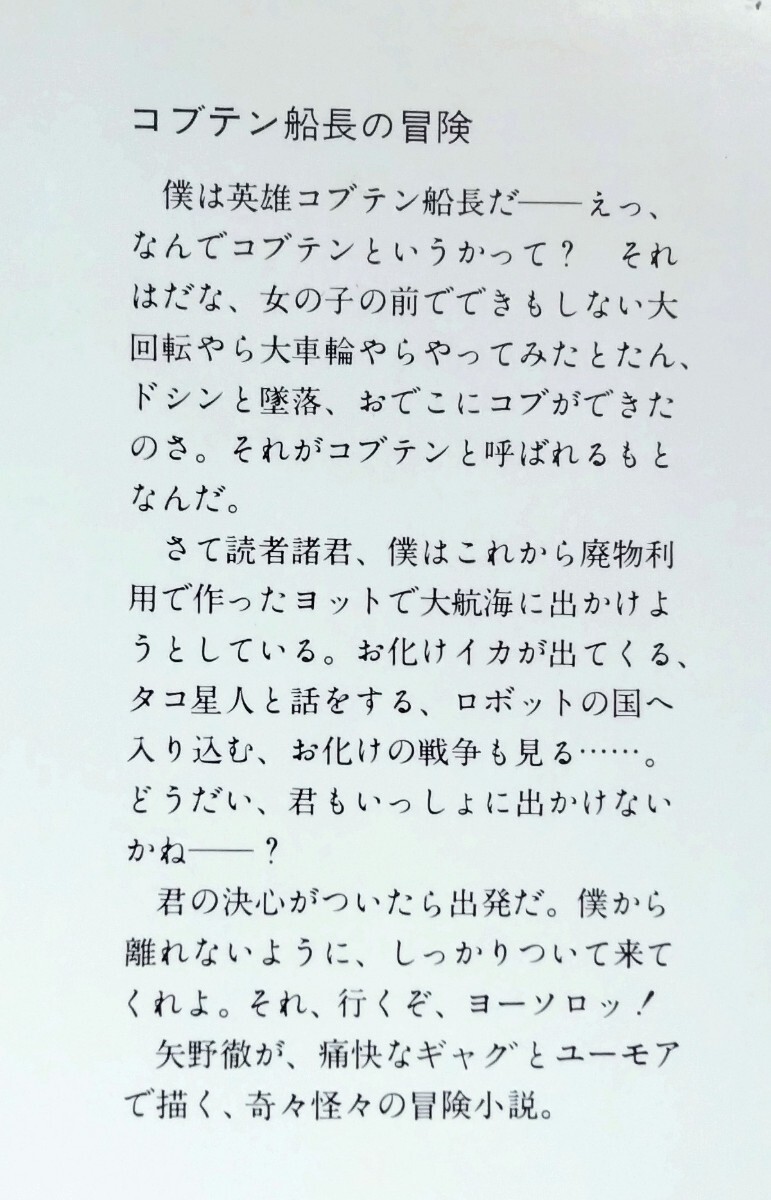 コブテン船長の冒険
僕は英雄コブテン船長だ――えっ、
なんでコブテンというかって？　それ
はだな、女の子の前でできもしない大
回転やら大車輪やらやってみたとたん、
ドシンと墜落、おでこにコブができた
のさ。それがコブテンと呼ばれるもと
なんだ。
さて読者諸君、僕はこれから廃物利
用で作ったヨットで大航海に出かけよ
うとしている。お化けイカが出てくる、
タコ星人と話をする、ロボットの国へ
入り込む、お化けの戦争も見る……。
どうだい、君もいっしょに出かけない
かね――？
君の決心がついたら出発だ。僕から
離れないように、しっかりついて来て
くれよ。それ、行くぞ、ヨーソロッ！
矢野徹が、痛快なギャグとユーモア
で描く、奇々怪々の冒険小説。